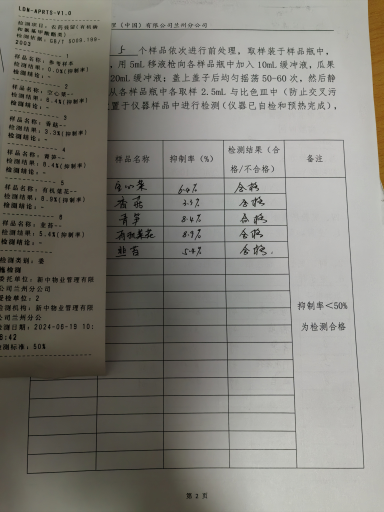 LDN-APRTS-V1.0
检测项目: 农药残留(有机磷
和氨基甲酸酯类)
检测依据: GB/T 5009.199-
2003
样品名称: 参考样本
检测结果: 0.0%(抑制率)
检测结论: -
样品名称: 空心菜--
检测结果: 6.4%(抑制率)
检测结论: -
样品名称: 香菇--
检测结果: 3.3%(抑制率)
检测结论: -
样品名称: 青笋--
检测结果: 8.4%(抑制率)
检测结论: -
5
样品名称: 有机菜花--
检测结果: 8.9%(抑制率)
检测结论: -
6
样品名称: 金谷--
检测结果: 5.4%(抑制率)
检测结论: -
检测类别: 委
委托单位: 新中物业管理有限
公司兰州分公司
受检单位: 2
检测机构: 新中物业管理有限
公司兰州分公
检测日期: 2024-06-19 10:
检测标准: 50%
(中国)有限公司兰州分公司
5 个样品依次进行前处理,取样装于样品瓶中,
,用 5mL 移液枪向各样品瓶中加入 10mL 缓冲液,瓜果
20mL 缓冲液;盖上盖子后均匀摇荡 50-60 次,然后静
从各样品瓶中各取样 2.5mL 与比色皿中(防止交叉污
置于仪器样中进行检测(仪器已自检和预热完成)。
样品名称 抑制率(%) 检测结果(合格/不合格) 备注
空心菜 6.4% 合格
香菇 3.3% 合格
青笋 8.4% 合格
有机菜花 8.9% 合格
5.4% 合格
抑制率<50%
为检测合格
第 2 页